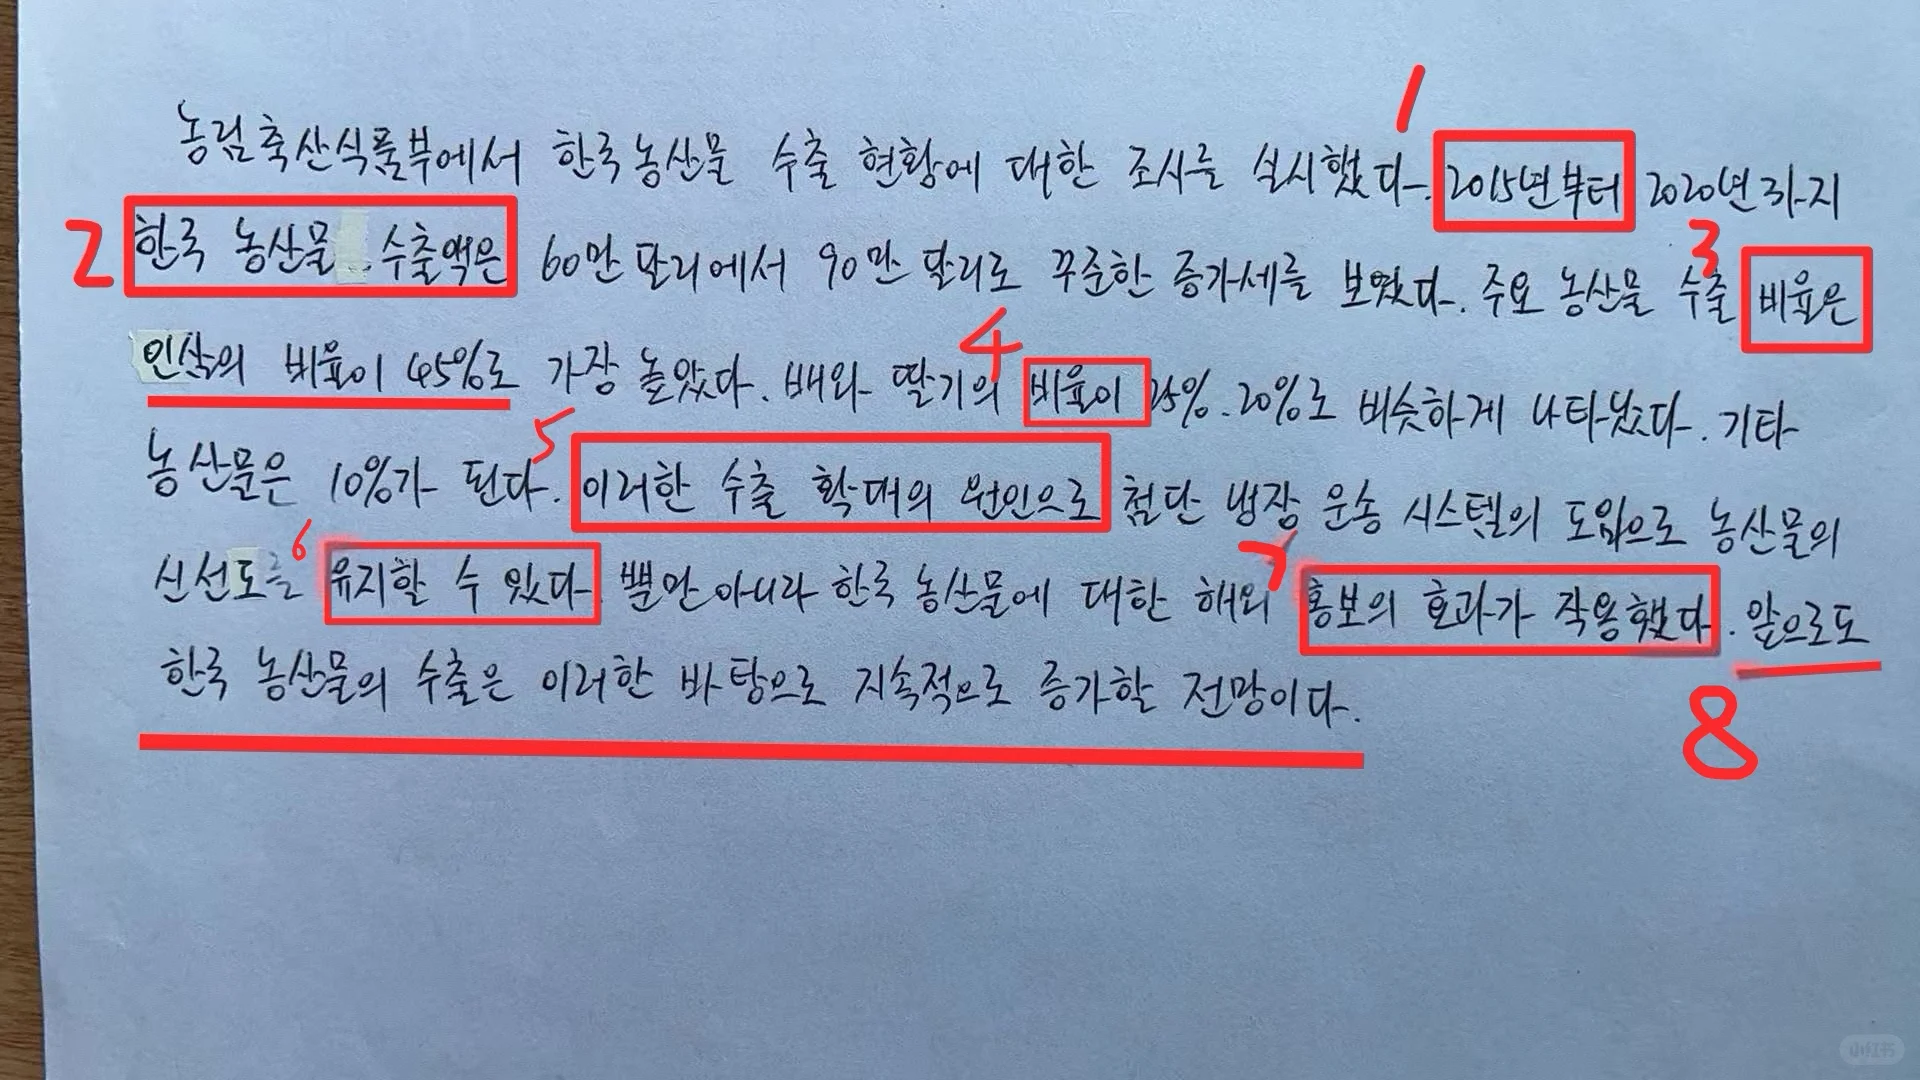 농림축산식품부에서 한국농산물 수출 현황에 대한 조사를 실시했다. 2015년부터 2020년까지
한국 농산물 수출액은 60만 달러에서 90만 달러로 꾸준한 증가세를 보였다. 주요 농산물 수출 비율은
인삼의 비율이 45%로 가장 높았다. 배와 딸기의 비율이 25%. 20%로 비슷하게 나타났다. 기타
농산물은 10%가 된다. 이러한 수출 확대의 원인으로 첨단 냉장 운송 시스템의 도입으로 농산물의
신선도를 유지할 수 있다. 뿐만 아니라 한국 농산물에 대한 해외 홍보의 효과가 작용했다. 앞으로도
한국 농산물의 수출은 이러한 바탕으로 지속적으로 증가할 전망이다.
1
2
3
4
5
6
7
8
小红书